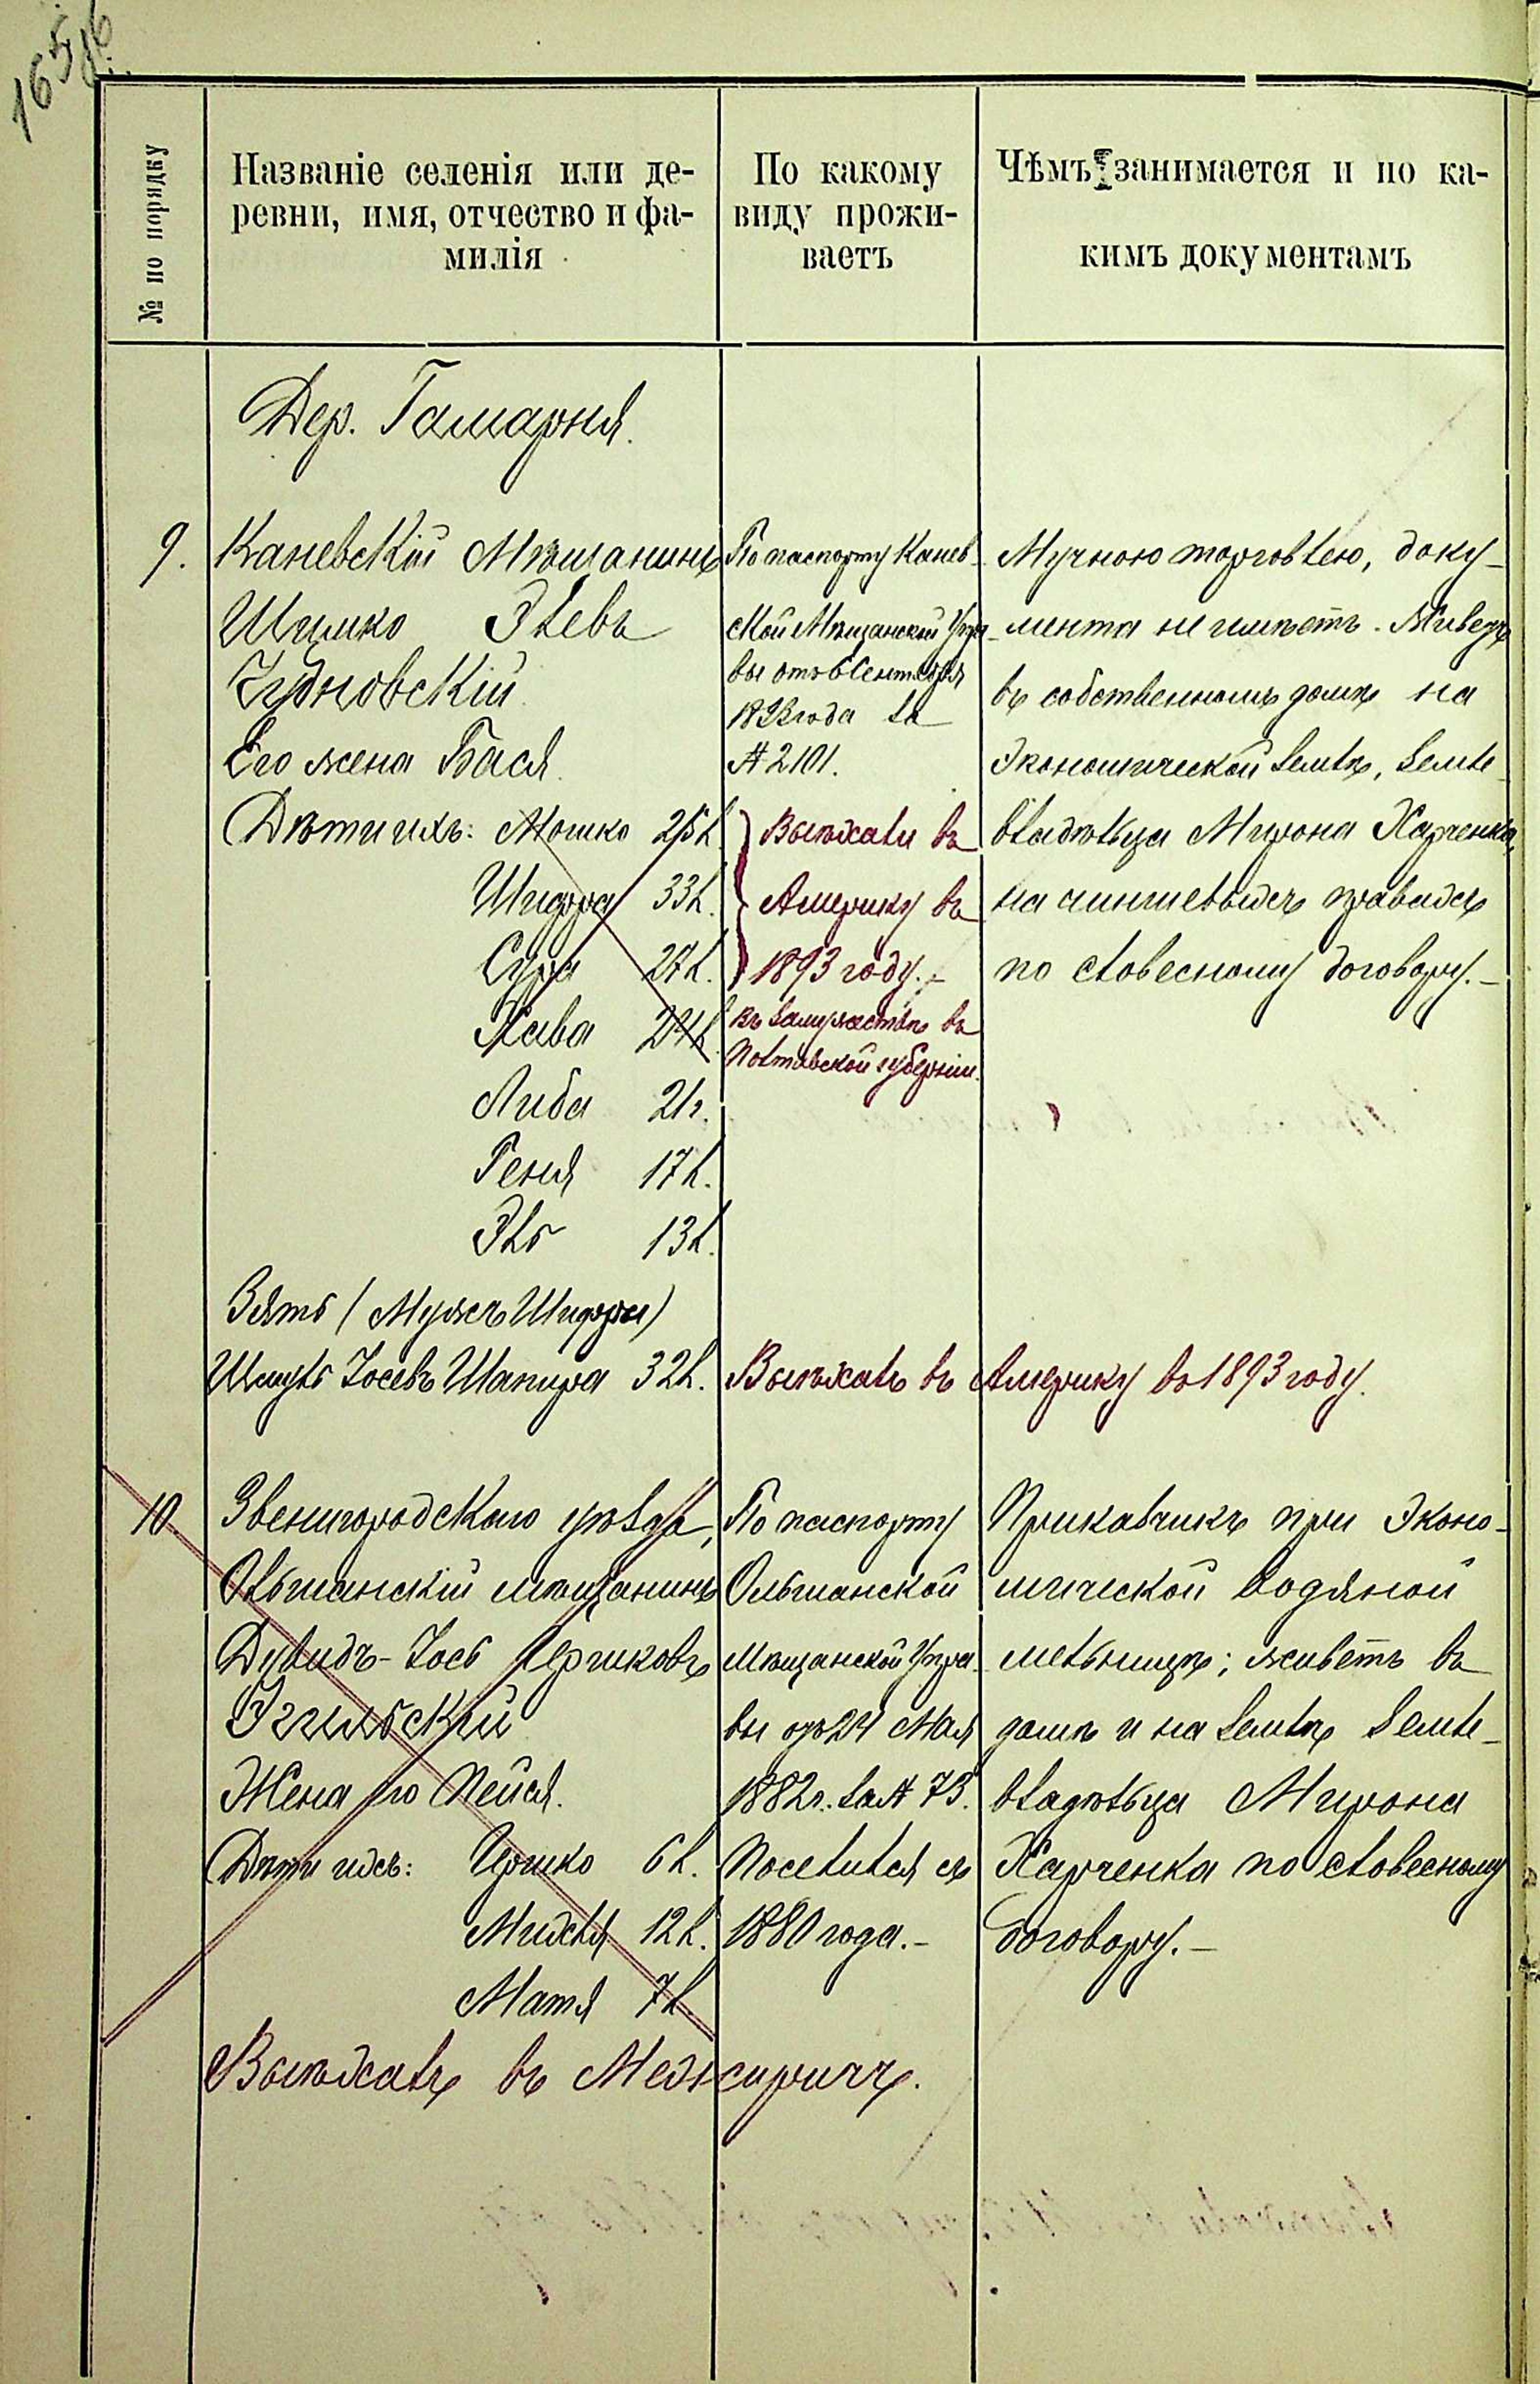 165об
№ по порядку
Названіе селенія или де-
ревни, имя, отчество и фа-
милія
По какому
виду прожи-
ваетъ
Чѣмъ занимается и по ка-
кимъ документамъ
Дер. Гамарня.
9.
Каневскій Мѣщанинъ
Шимко Элевъ
Чудновскій.
Его жена Бася.
Дѣти ихъ: Мошко 25 л.
Шифра 33 л.
Сура 27 л.
Хава 24 л.
Либа 21 г.
Геня 17 л.
Эль 13 л.
Зять (Мужъ Шифры)
Шмуль Іосевъ Шапира 32 л.
По паспорту Канев-
ской Мѣщанской Упра-
вы отъ 6 Сентября
года за
№ 2101.
Выѣхали въ
Америку въ
1893 году.-
Въ замужествѣ въ
Полтавской губерніи.
Выѣхалъ въ Америку въ 1893 году.
Мучною торговлею, доку-
мента не имѣетъ. Живетъ
въ собственномъ домѣ на
Экономической землѣ, земле-
владѣльца Мирона Харченка,
на чиншевыхъ правахъ
по словесному договору.-
10
Звенигородскаго уѣзда,
Ольшанскій мѣщанинъ
Дувидъ-Іось Гершковъ
Жена его Пейся.
Дѣти ихъ: Гершко 6 л.
Михля 12 л.
Матя 7 л.
Выѣхалъ въ Межиричъ.
По паспорту
Ольшанской
Мѣщанской Упра-
вы отъ 24 Мая
1882 г. за № 73.
Поселился съ
1880 года.-
Приказчикъ при Эконо-
мической водяной
мельницѣ; живетъ въ
домѣ и на землѣ земле-
владѣльца Мирона
Харченка по словесному
договору.-